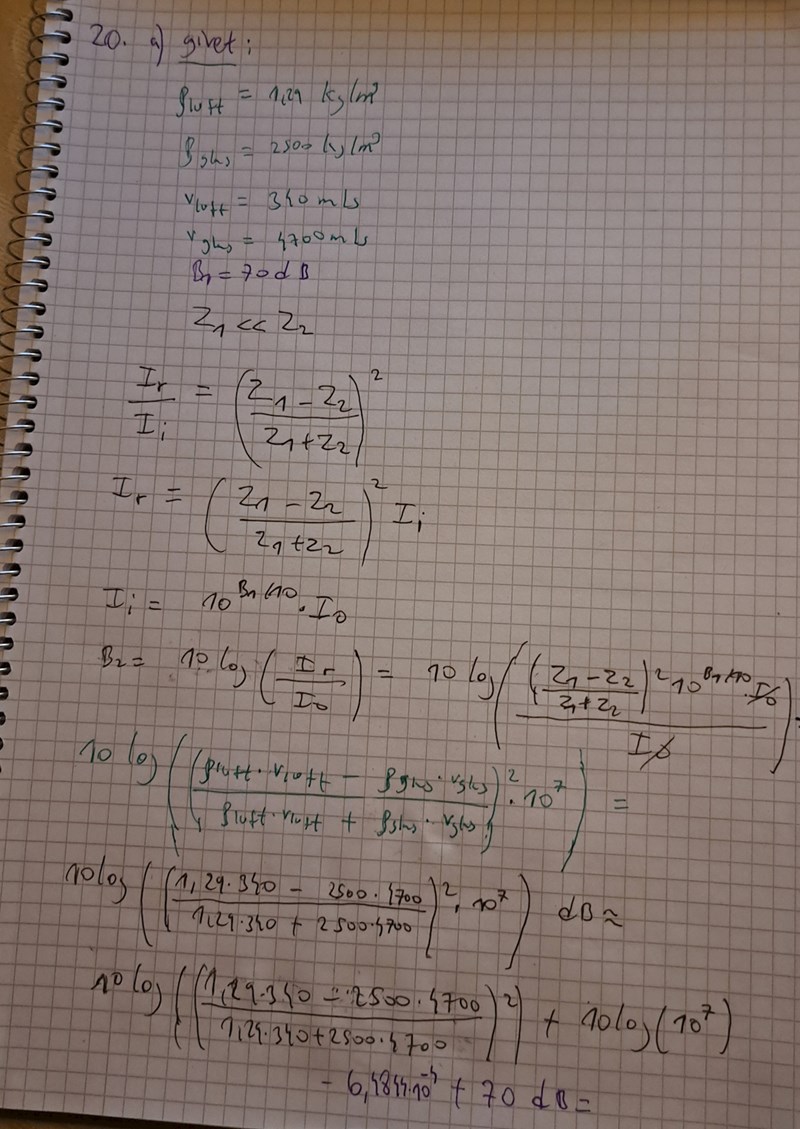 20. a) givet:
ρluft = 1,29 kg/m³
ρglas = 2500 kg/m³
vluft = 340 m/s
vglas = 4700 m/s
B₁ = 70 dB
Z₁ << Z₂
Ir/Ii = ((Z₁ - Z₂)/(Z₁ + Z₂))²
Ir = ((Z₁ - Z₂)/(Z₁ + Z₂))² Ii
Ii = 10^(B₁/10) · I₀
B₂ = 10 log(Ir/I₀) = 10 log(((Z₁ - Z₂)/(Z₁ + Z₂))² 10^(B₁/10) · I₀ / I₀) =
10 log(((ρluft · vluft - ρglas · vglas)/(ρluft · vluft + ρglas · vglas))² · 10⁷) =
10 log(((1,29·340 - 2500·4700)/(1,29·340 + 2500·4700))² · 10⁷) dB ≈
10 log(((1,29·340 - 2500·4700)/(1,29·340 + 2500·4700))²) + 10 log(10⁷)
- 6,4844·10⁻⁴ + 70 dB =